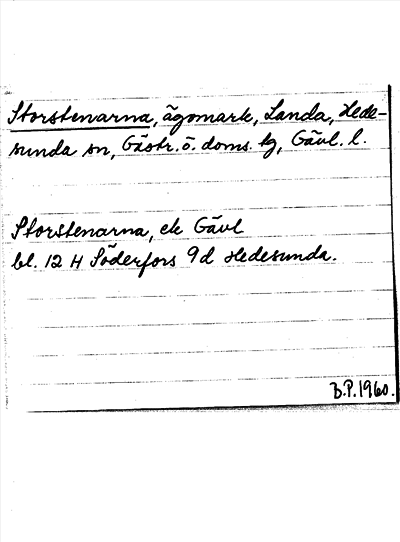 Storstenarna, ägomark, Landa, Hede-
sunda sn, Gästr. ö. doms. tg, Gävl. l.
Storstenarna, ek Gävl
bl. 12 H Söderfors 9d Hedesunda.
B.P. 1960.